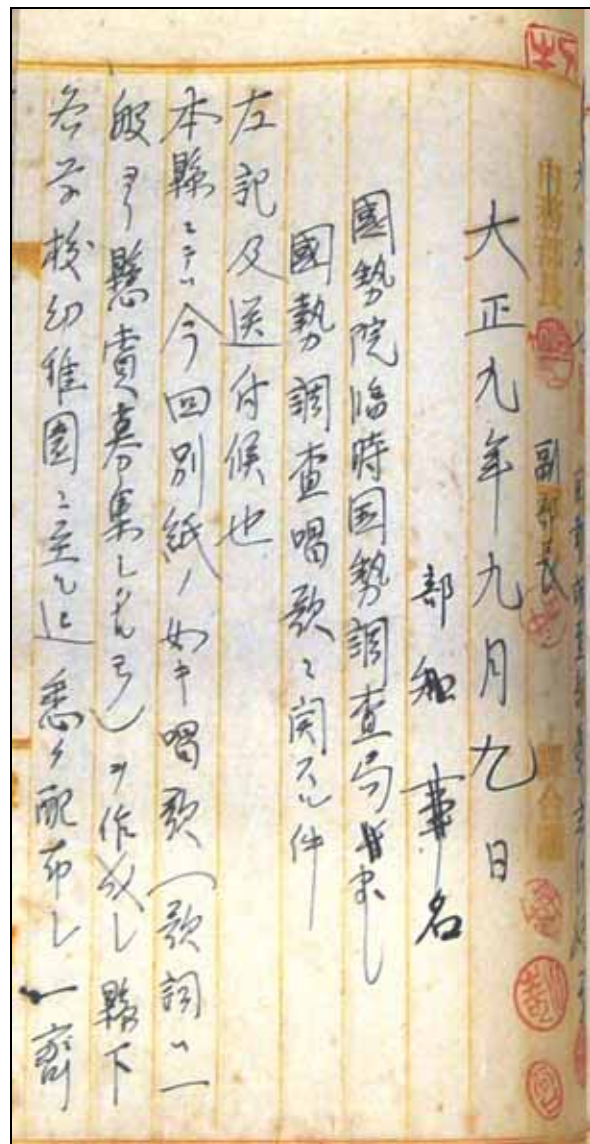 副部長
大正九年九月九日
部知事名
國勢院臨時国勢調査局
國勢調査唱歌ニ関スル件
左記及送付候也
本縣ニテハ今回別紙ノ如キ唱歌(歌詞ハ一
般ヨリ懸賞募集シタルモノ)ヲ作成シ縣下
各学校幼稚園ニ至ル迄悉ク配布シ一齊